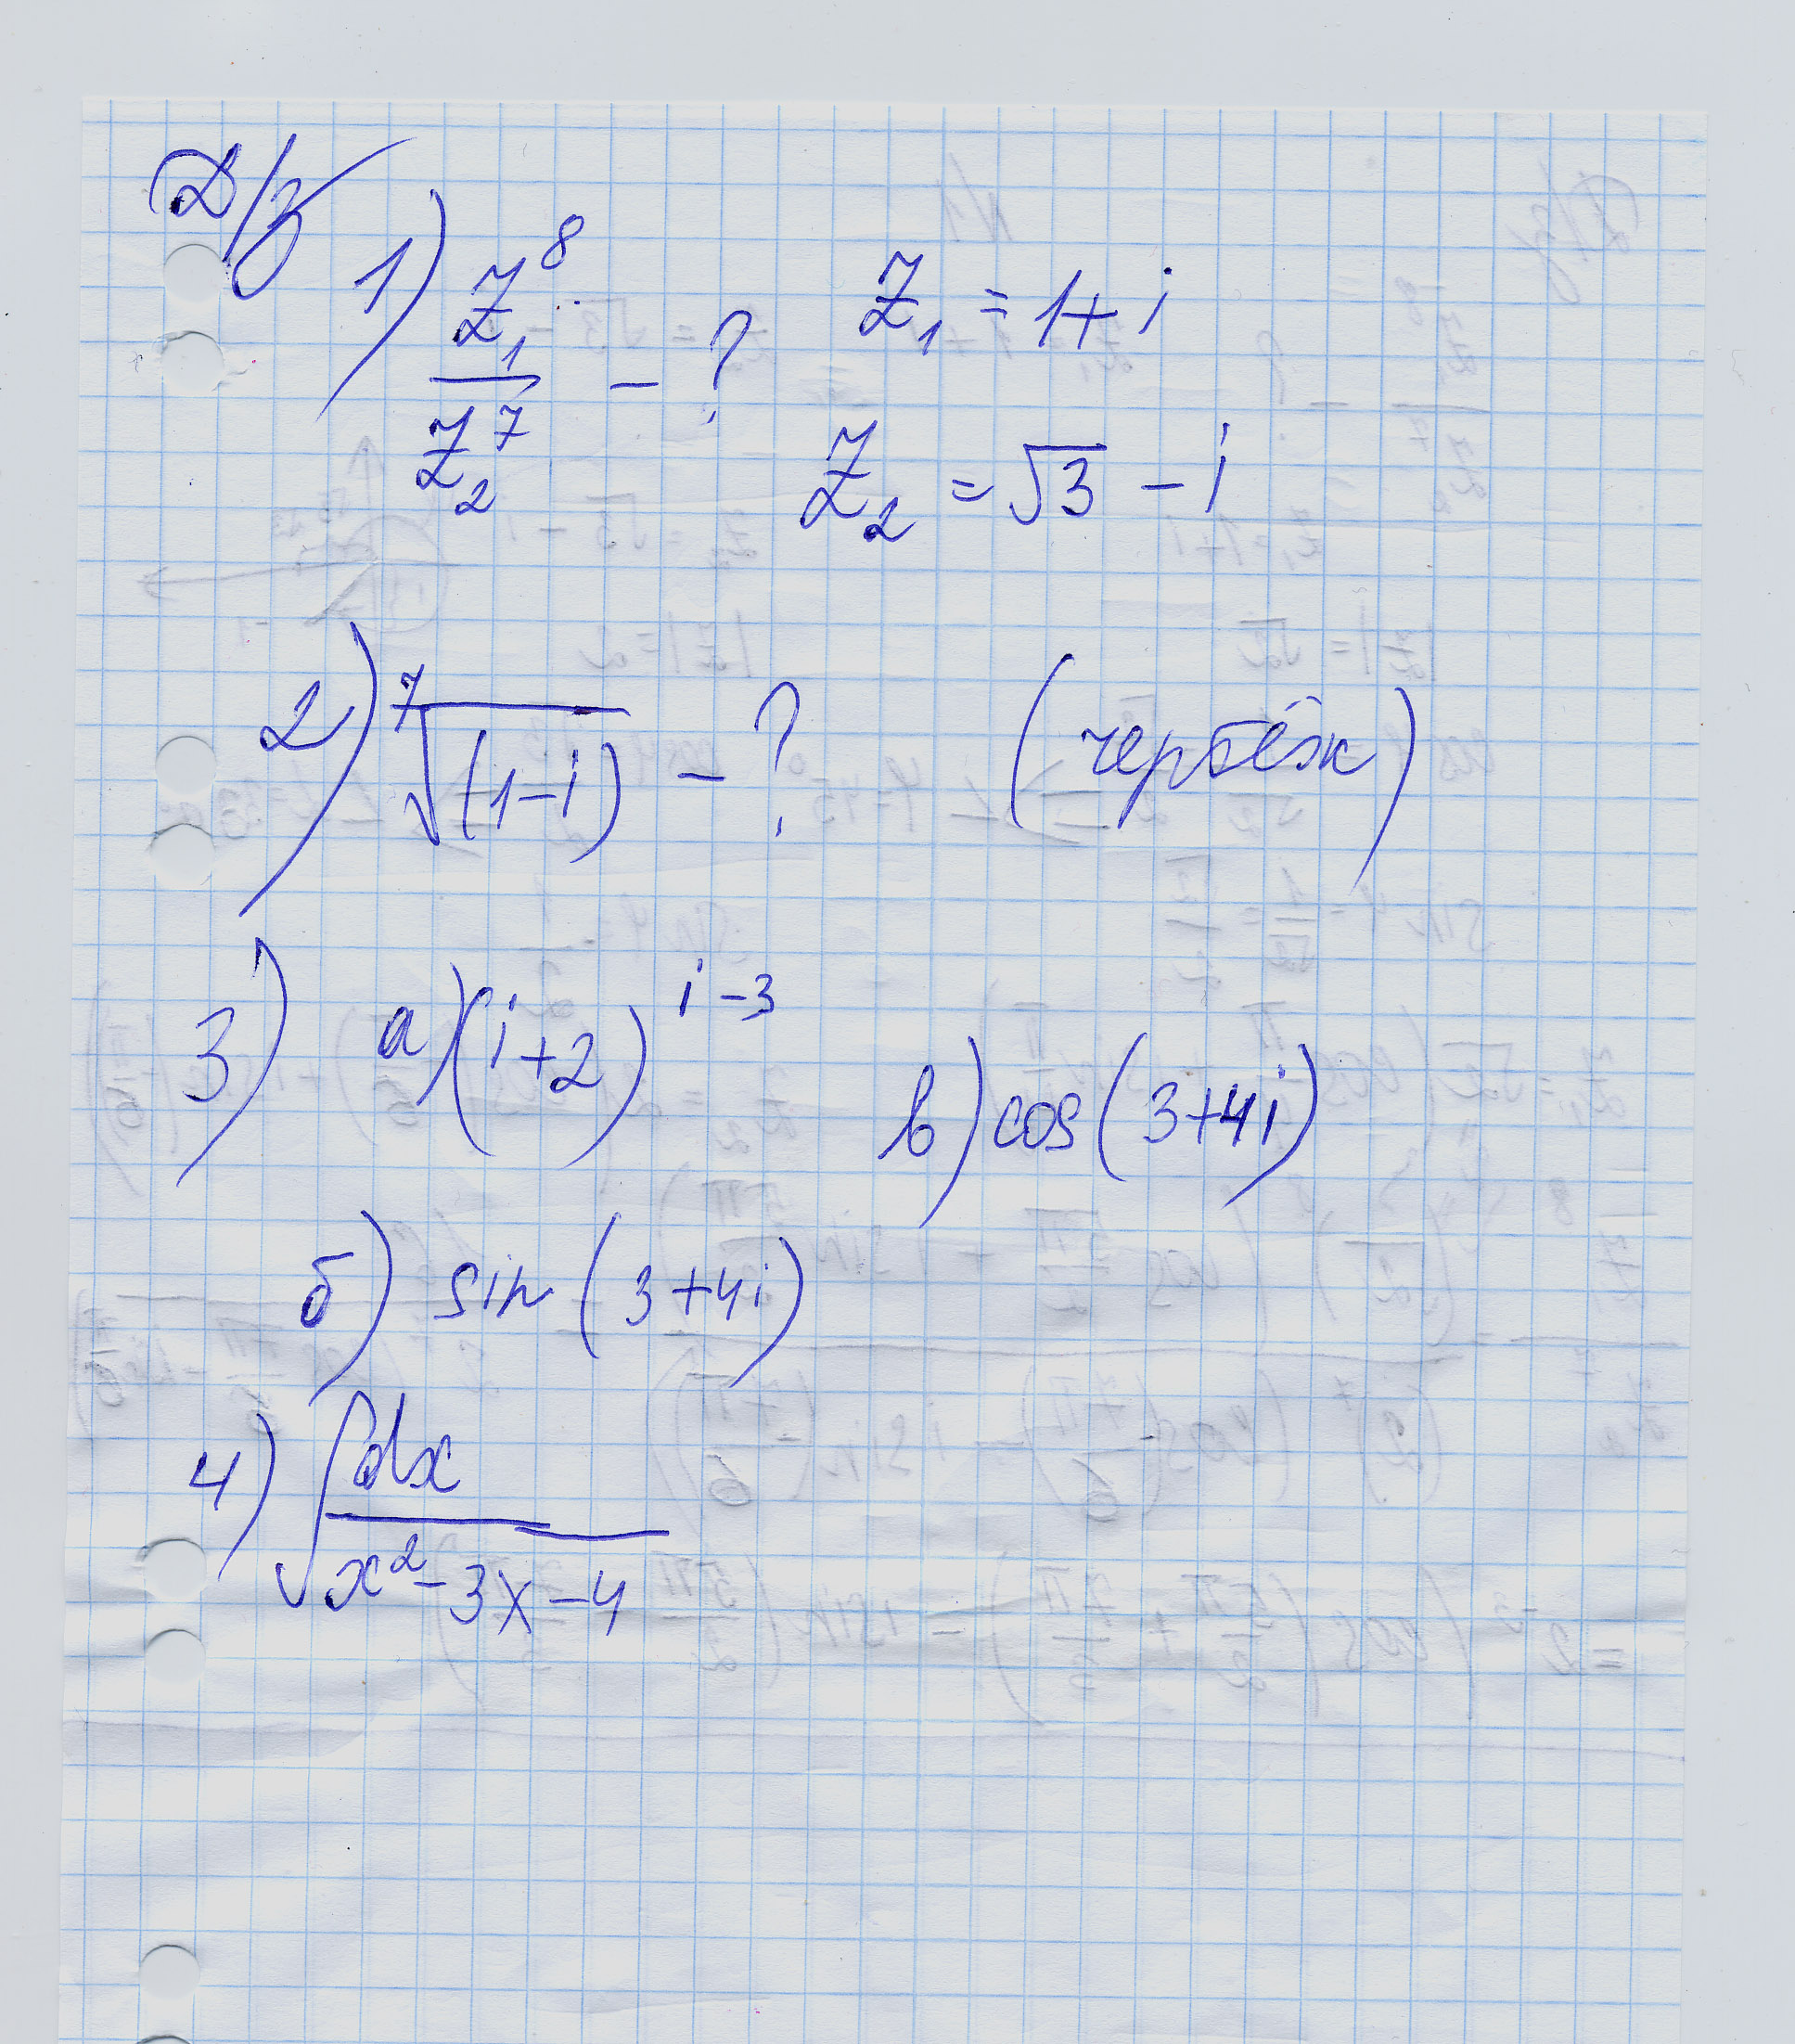 Д/з
1) Z₁⁸ / Z₂⁷ - ? Z₁ = 1 + i
Z₂ = √3 - i
2) ⁷√(1-i) - ? (чертёж)
3) а) (i+2)^(i-3)
в) cos(3+4i)
б) sin(3+4i)
4) ∫ dx / (x² - 3x - 4)